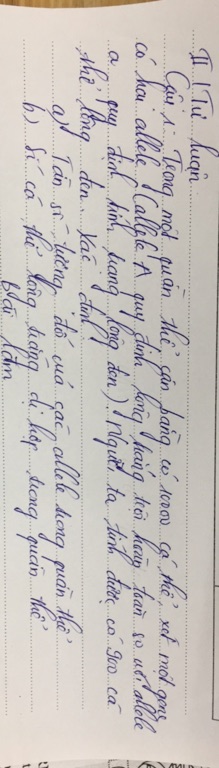 II/ Tự luận
Câu 1: Trong một quần thể cân bằng có 10000 cá thể, xét một gene
có hai allele (allele A quy định lông trắng trội hoàn toàn so với allele
a quy định tính trạng lông đen). Người ta tính được có 900 cá
thể lông đen. Xác định
a) Tần số tương đối của các allele trong quần thể
b) Số cá thể lông trắng dị hợp trong quần thể
Bài làm